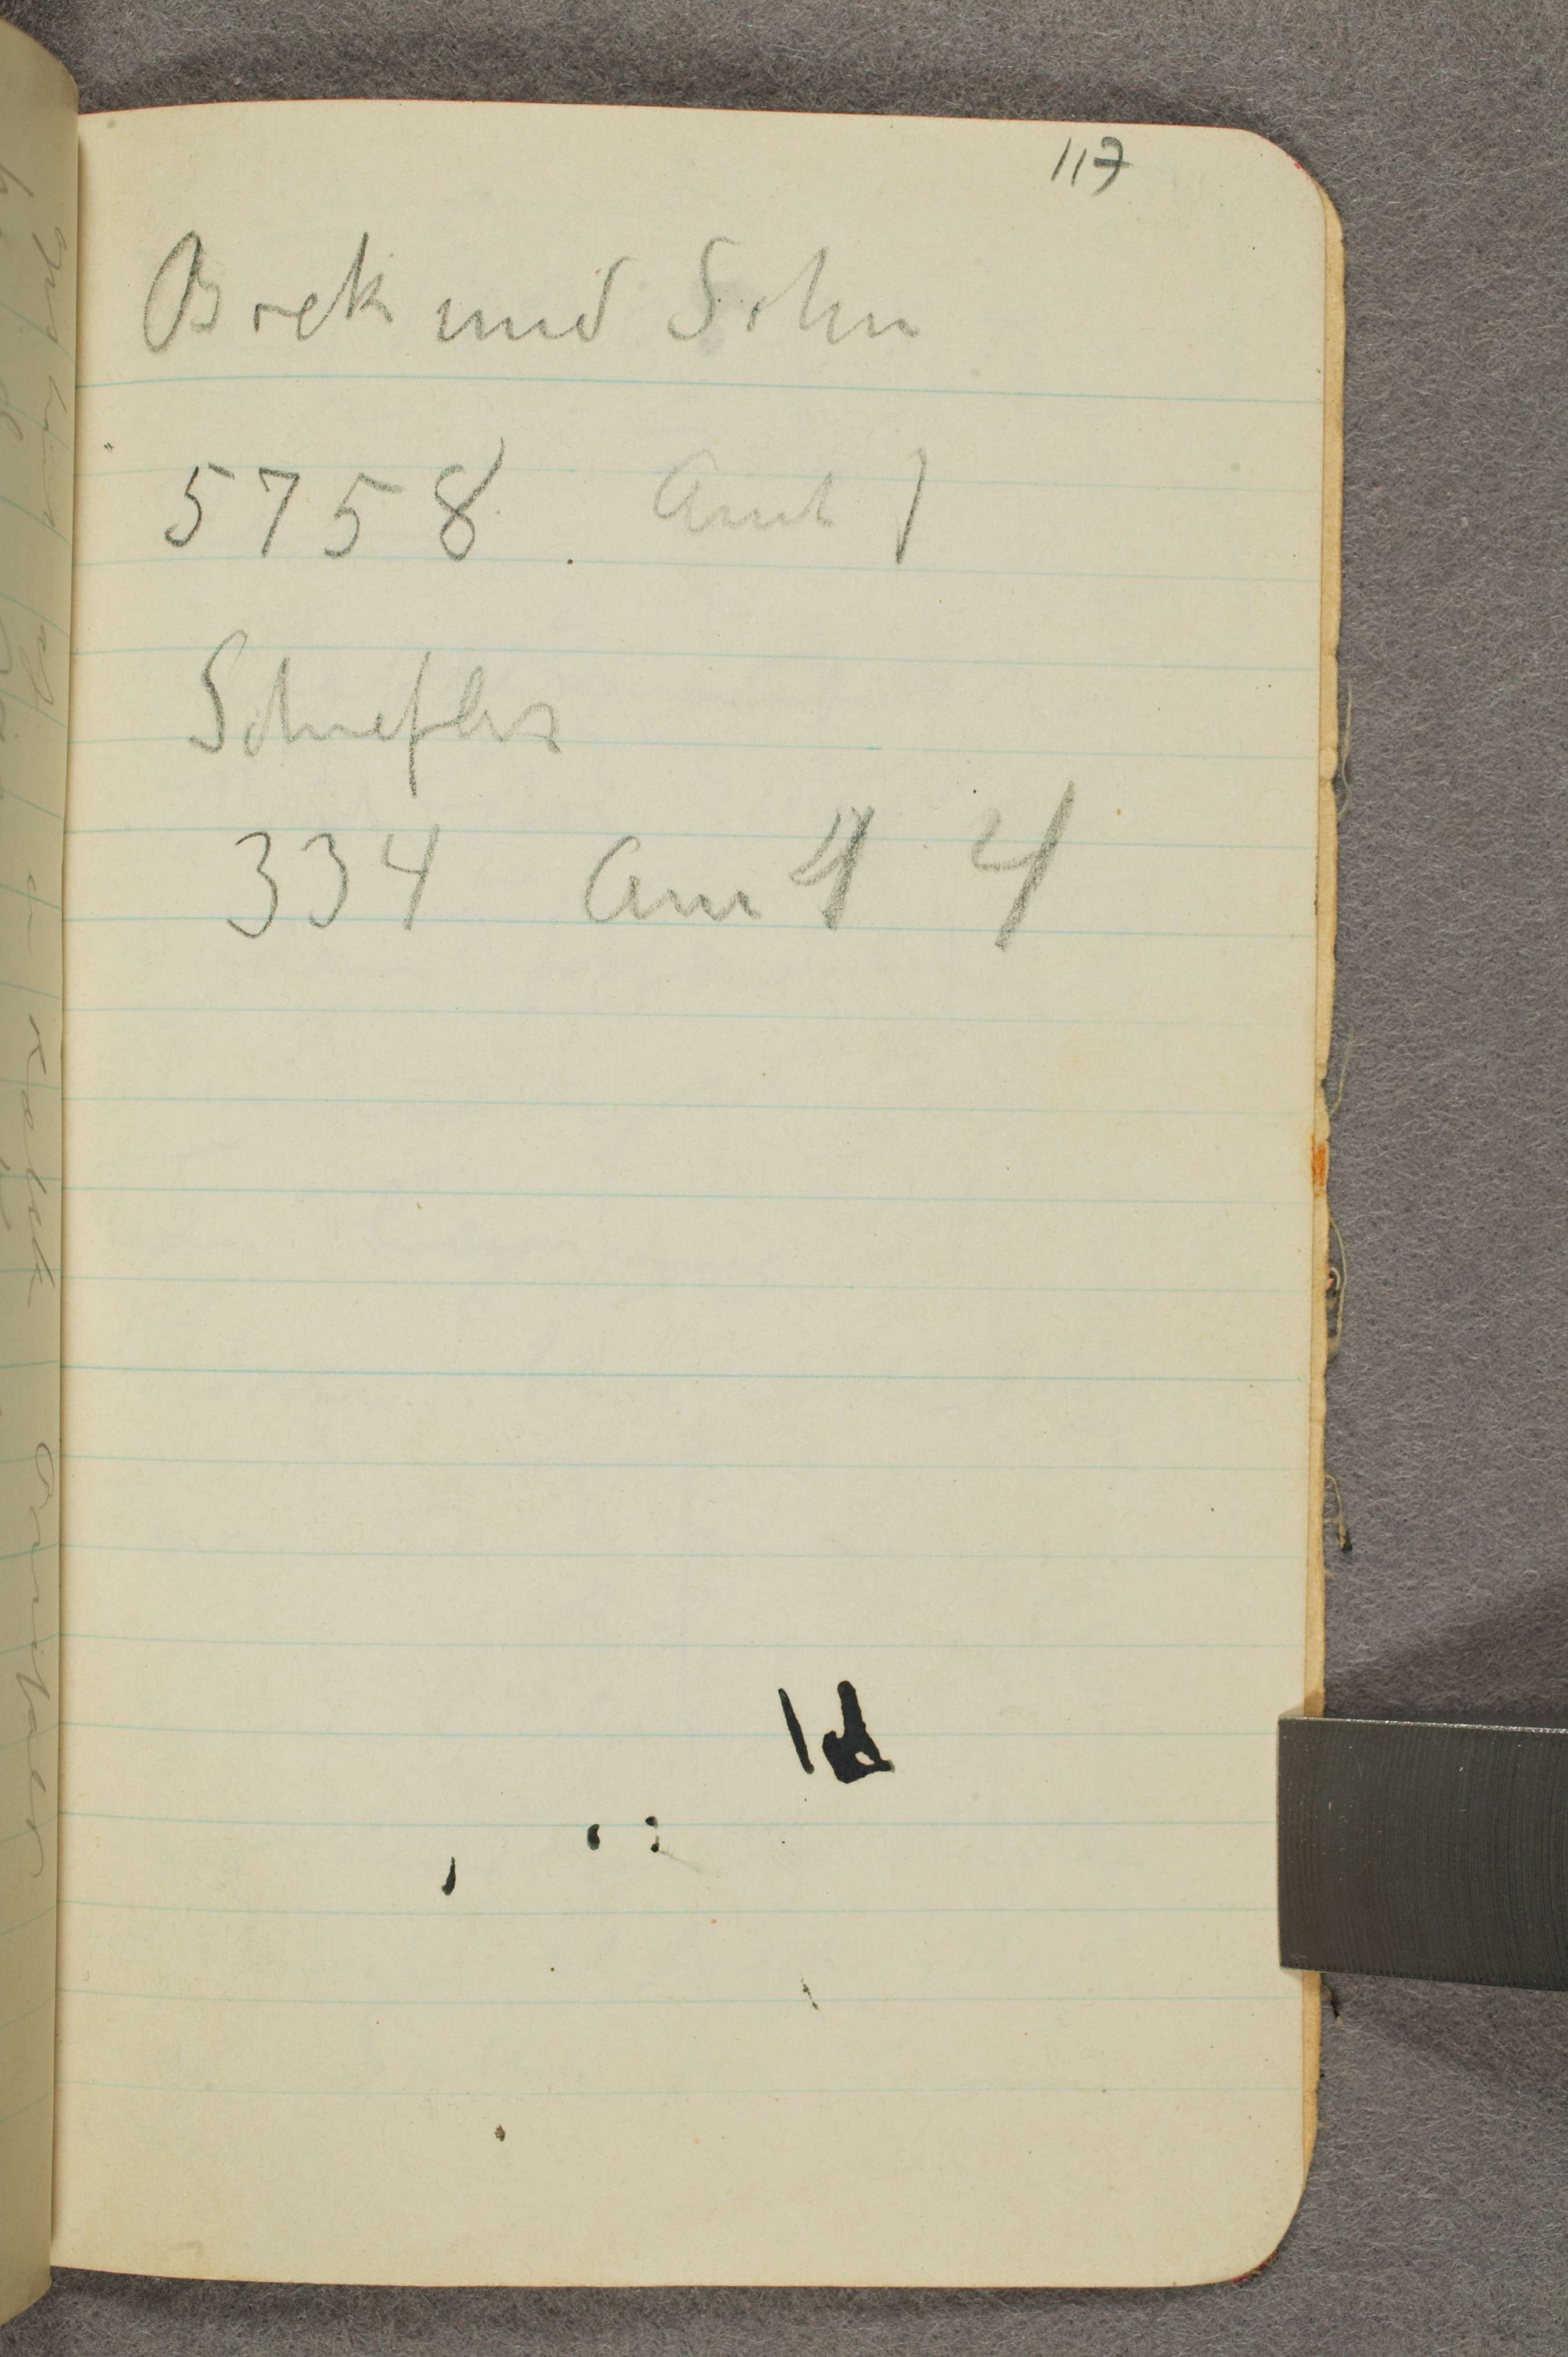 117
Bock und Sohn
5758 Amt 1
Schieflers
334 Amt 4